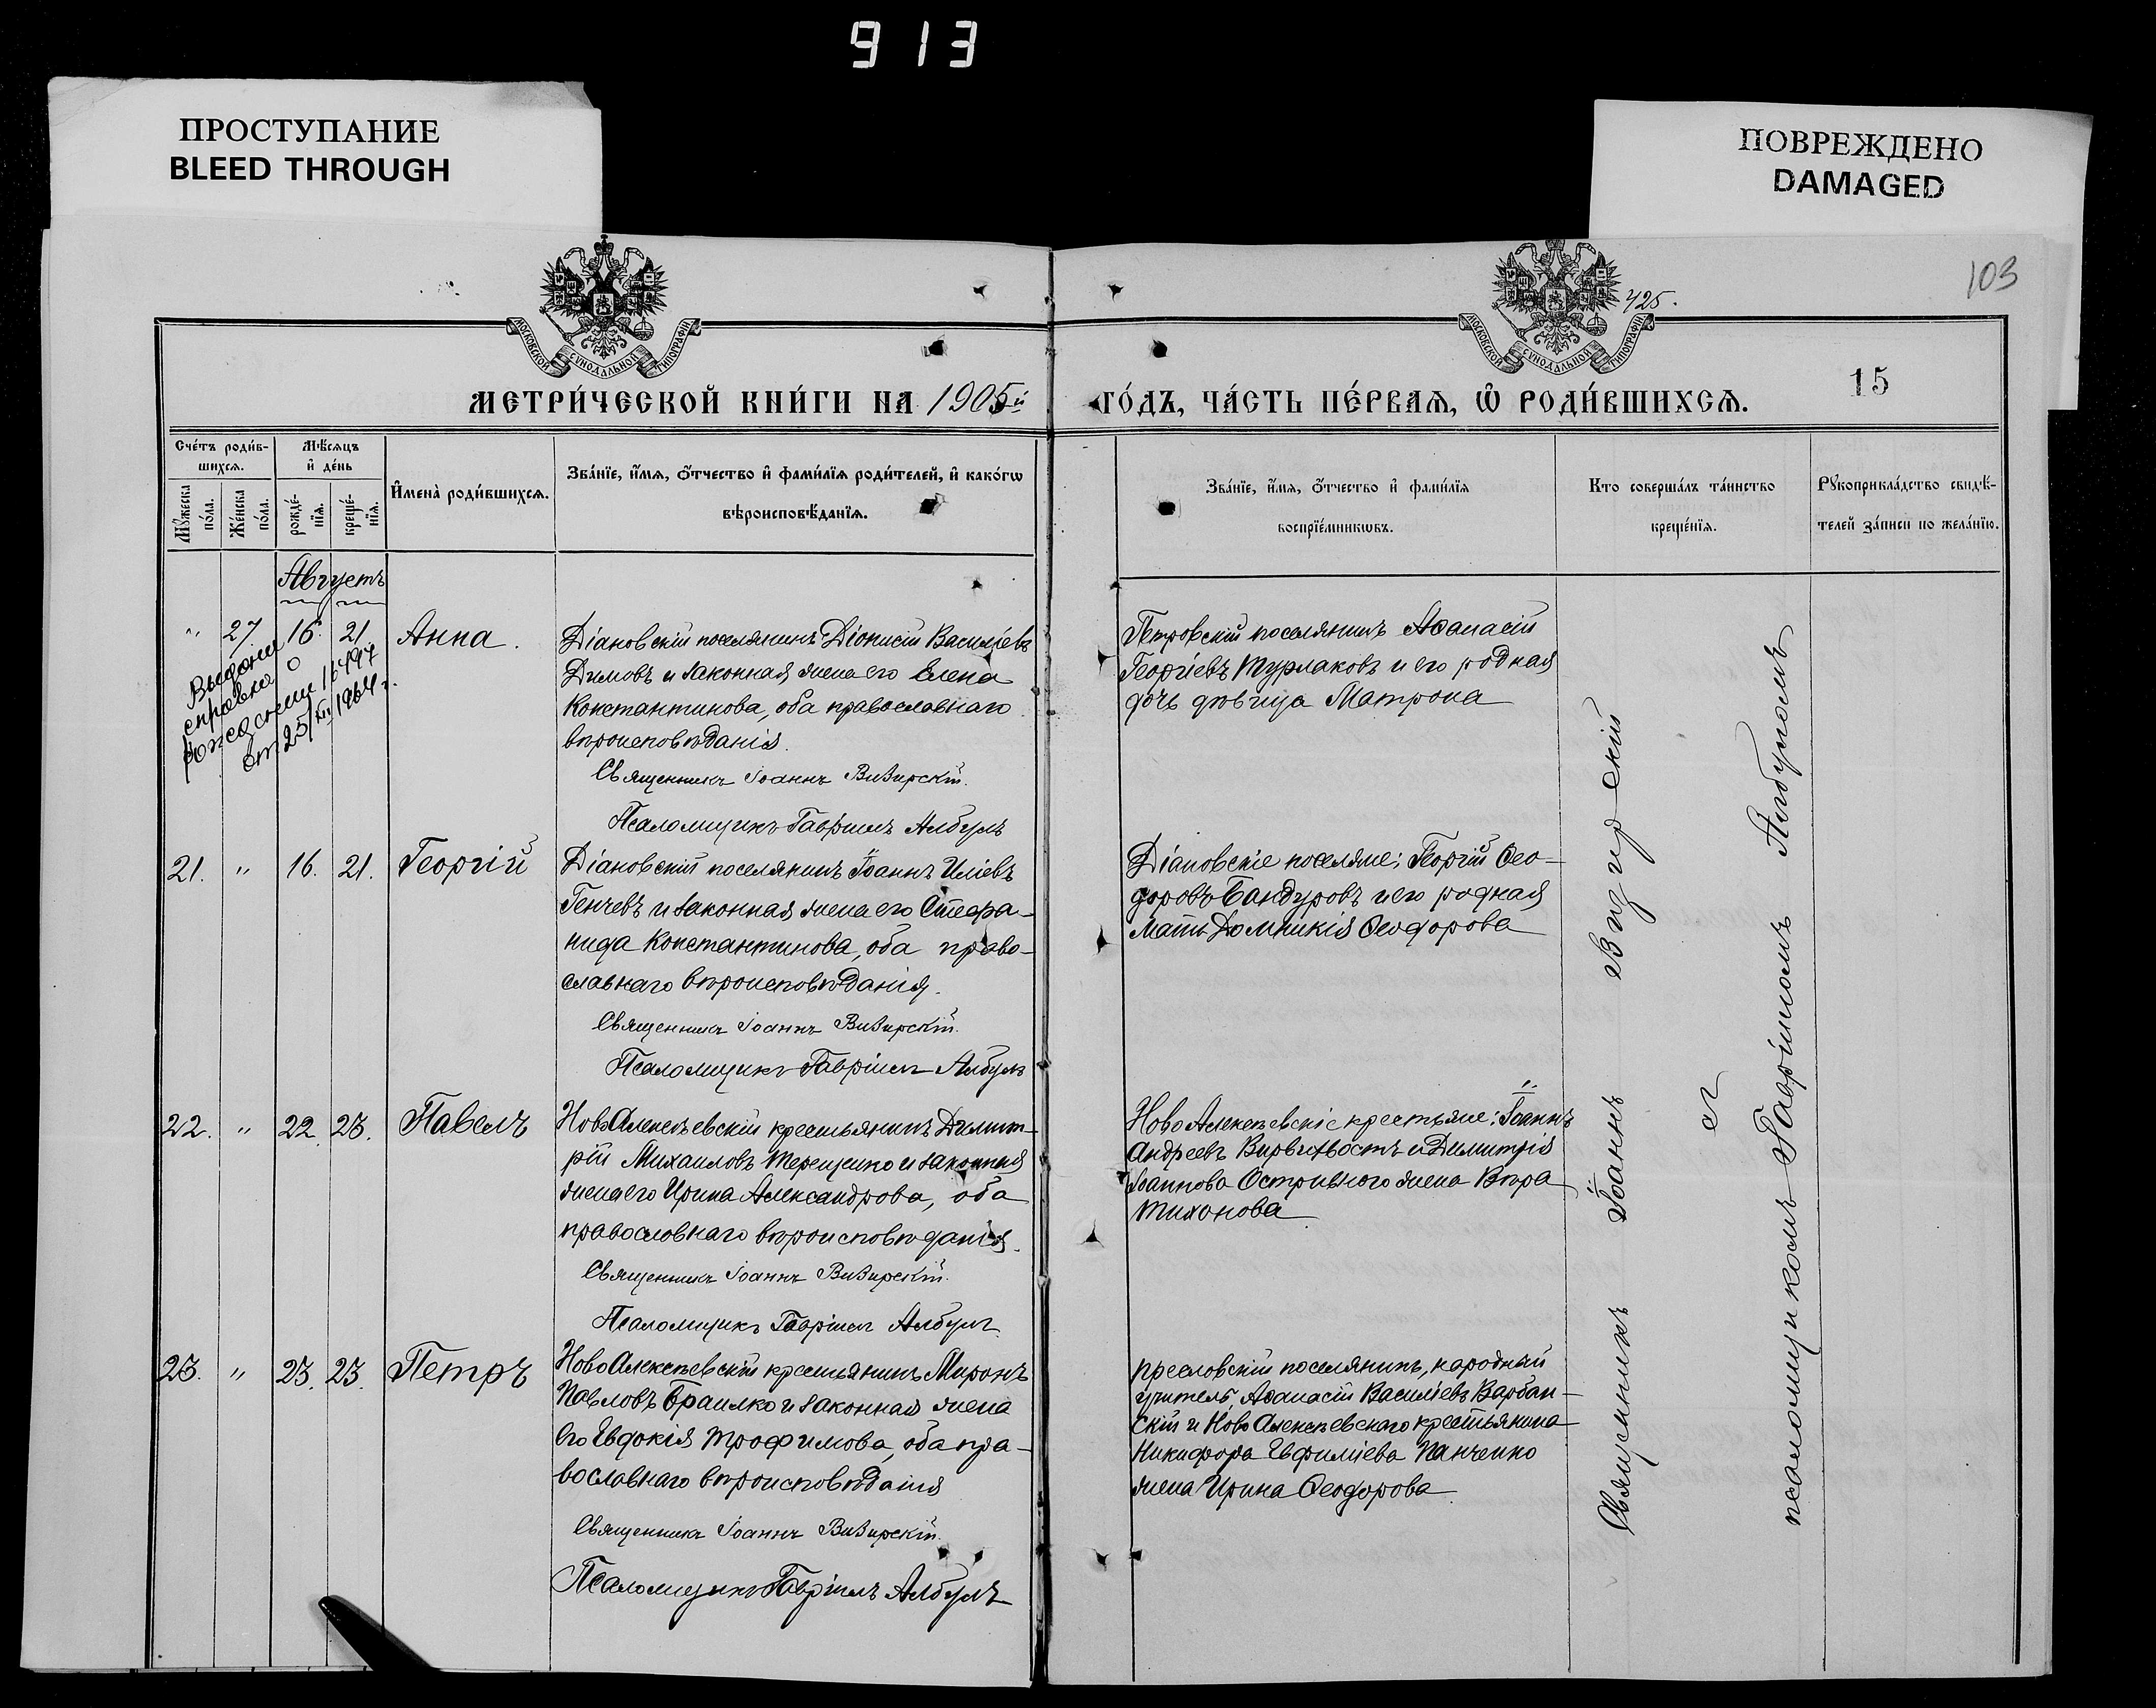 913
ПРОСТУПАНИЕ
BLEED THROUGH
ПОВРЕЖДЕНО
DAMAGED
103
425.
МОСКОВСКОЙ СѴНОДАЛЬНОЙ ТИПОГРАФІИ
МОСКОВСКОЙ СѴНОДАЛЬНОЙ ТИПОГРАФІИ
МЕТРИ́ЧЕСКОЙ КНИ́ГИ НА 1905й
ГО́ДЪ, ЧА́СТЬ ПЕ́РВАѦ, Ѡ҆ РОДИ́ВШИХСѦ.
15
Сче́тъ роди́в-
шихсѧ.
Мѣ́сѧцъ
и҆ де́нь
Мꙋ́жеска
по́ла.
Же́нска
по́ла.
рожде́-
нїѧ.
креще́-
нїѧ.
И҆мена̀ роди́вшихсѧ.
Зва́нїе, и҆́мѧ, ѻ҆́тчество и҆ фами́лїѧ роди́телей, и҆ како́гѡ
вѣроисповѣ́данїѧ.
Зва́нїе, и҆́мѧ, ѻ҆́тчество и҆ фами́лїѧ
воспрїе́мникѡвъ.
Кто соверша́лъ та́инство
креще́нїѧ.
Рꙋкоприкла́дство свидѣ́-
телей за́писи по жела́нїю.
Августъ
" 27 16. 21. Анна.
Выдана
справка о
рождении
от 25/XII 1964 г.
Діановскій поселянинъ Діонисій Василіевъ
Димовъ и законная жена его Елена
Константинова, оба православнаго
вѣроисповѣданія.
Священникъ Іоаннъ Визирскій.
Псаломщикъ Гавріилъ Албулъ
Петровскій поселянинъ Аѳанасій
Георгіевъ Турлаковъ и его родная
дочь дѣвица Матрона
21. " 16. 21. Георгій
Діановскій поселянинъ Іоаннъ Иліевъ
Генчевъ и законная жена его Стефа-
нида Константинова, оба право-
славнаго вѣроисповѣданія.
Священникъ Іоаннъ Визирскій.
Псаломщикъ Гавріилъ Албулъ
Діановскіе поселяне: Георгій Ѳео-
доровъ Бандуровъ и его родная
мать Домникія Ѳеодорова
22. " 22. 23. Павелъ
НовоАлексѣевскій крестьянинъ Димит-
рій Михаиловъ Терещенко и законная
жена его Ирина Александрова, оба
православнаго вѣроисповѣданія.
Священникъ Іоаннъ Визирскій.
Псаломщикъ Гавріилъ Албулъ
НовоАлексѣевскіе крестьяне: Іоаннъ
Андреевъ Вирвихвостъ и Димитрія
Іоаннова Остривного жена Вѣра
Тихонова
23. " 23. 23. Петръ
НовоАлексѣевскій крестьянинъ Миронъ
Павловъ Браилко и законная жена
его Евдокія Трофимова, оба пра-
вославнаго вѣроисповѣданія
Священникъ Іоаннъ Визирскій.
Псаломщикъ Гавріилъ Албулъ
поселянинъ, народный
учитель, Аѳанасій Василіевъ Варбан-
скій и НовоАлексѣевскаго крестьянина
Никифора Евфиміева Панченко
жена Ирина Ѳеодорова
Священникъ Іоаннъ Визирскій
съ
псаломщикомъ Гавріиломъ Албуломъ